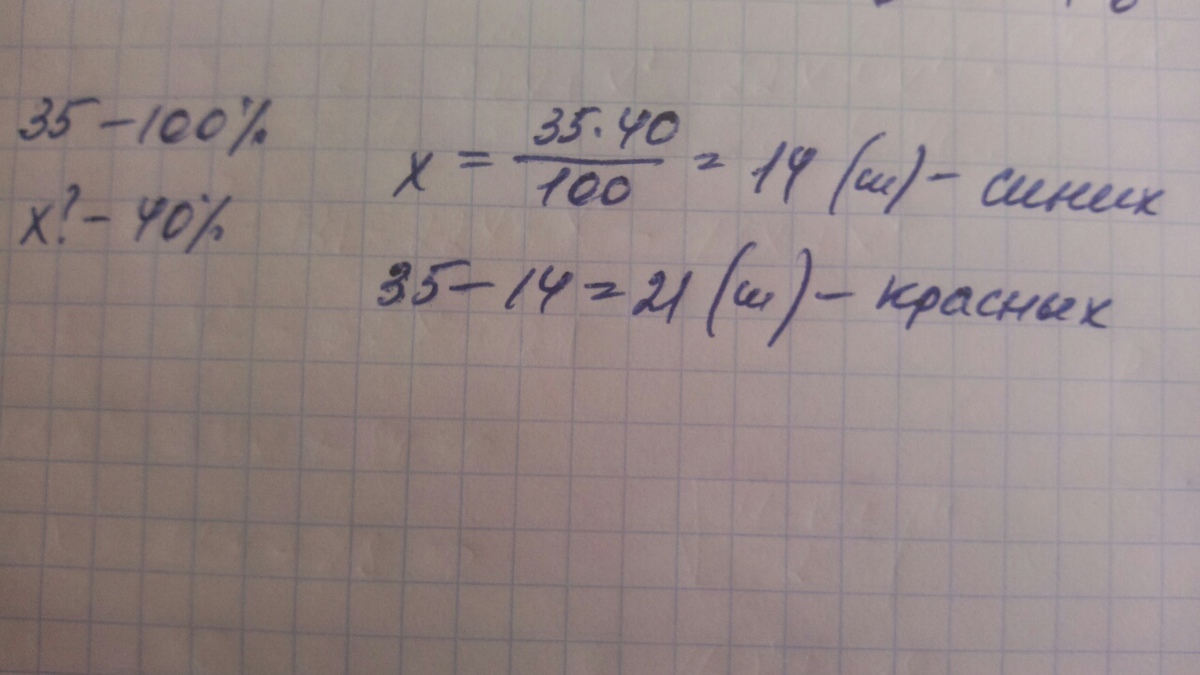 35 – 100%
x? – 40%
x = 35·40/100 = 14 (ш) – синих
35 – 14 = 21 (ш) – красных